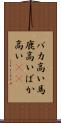 バカ高い馬
鹿高いばか
高い